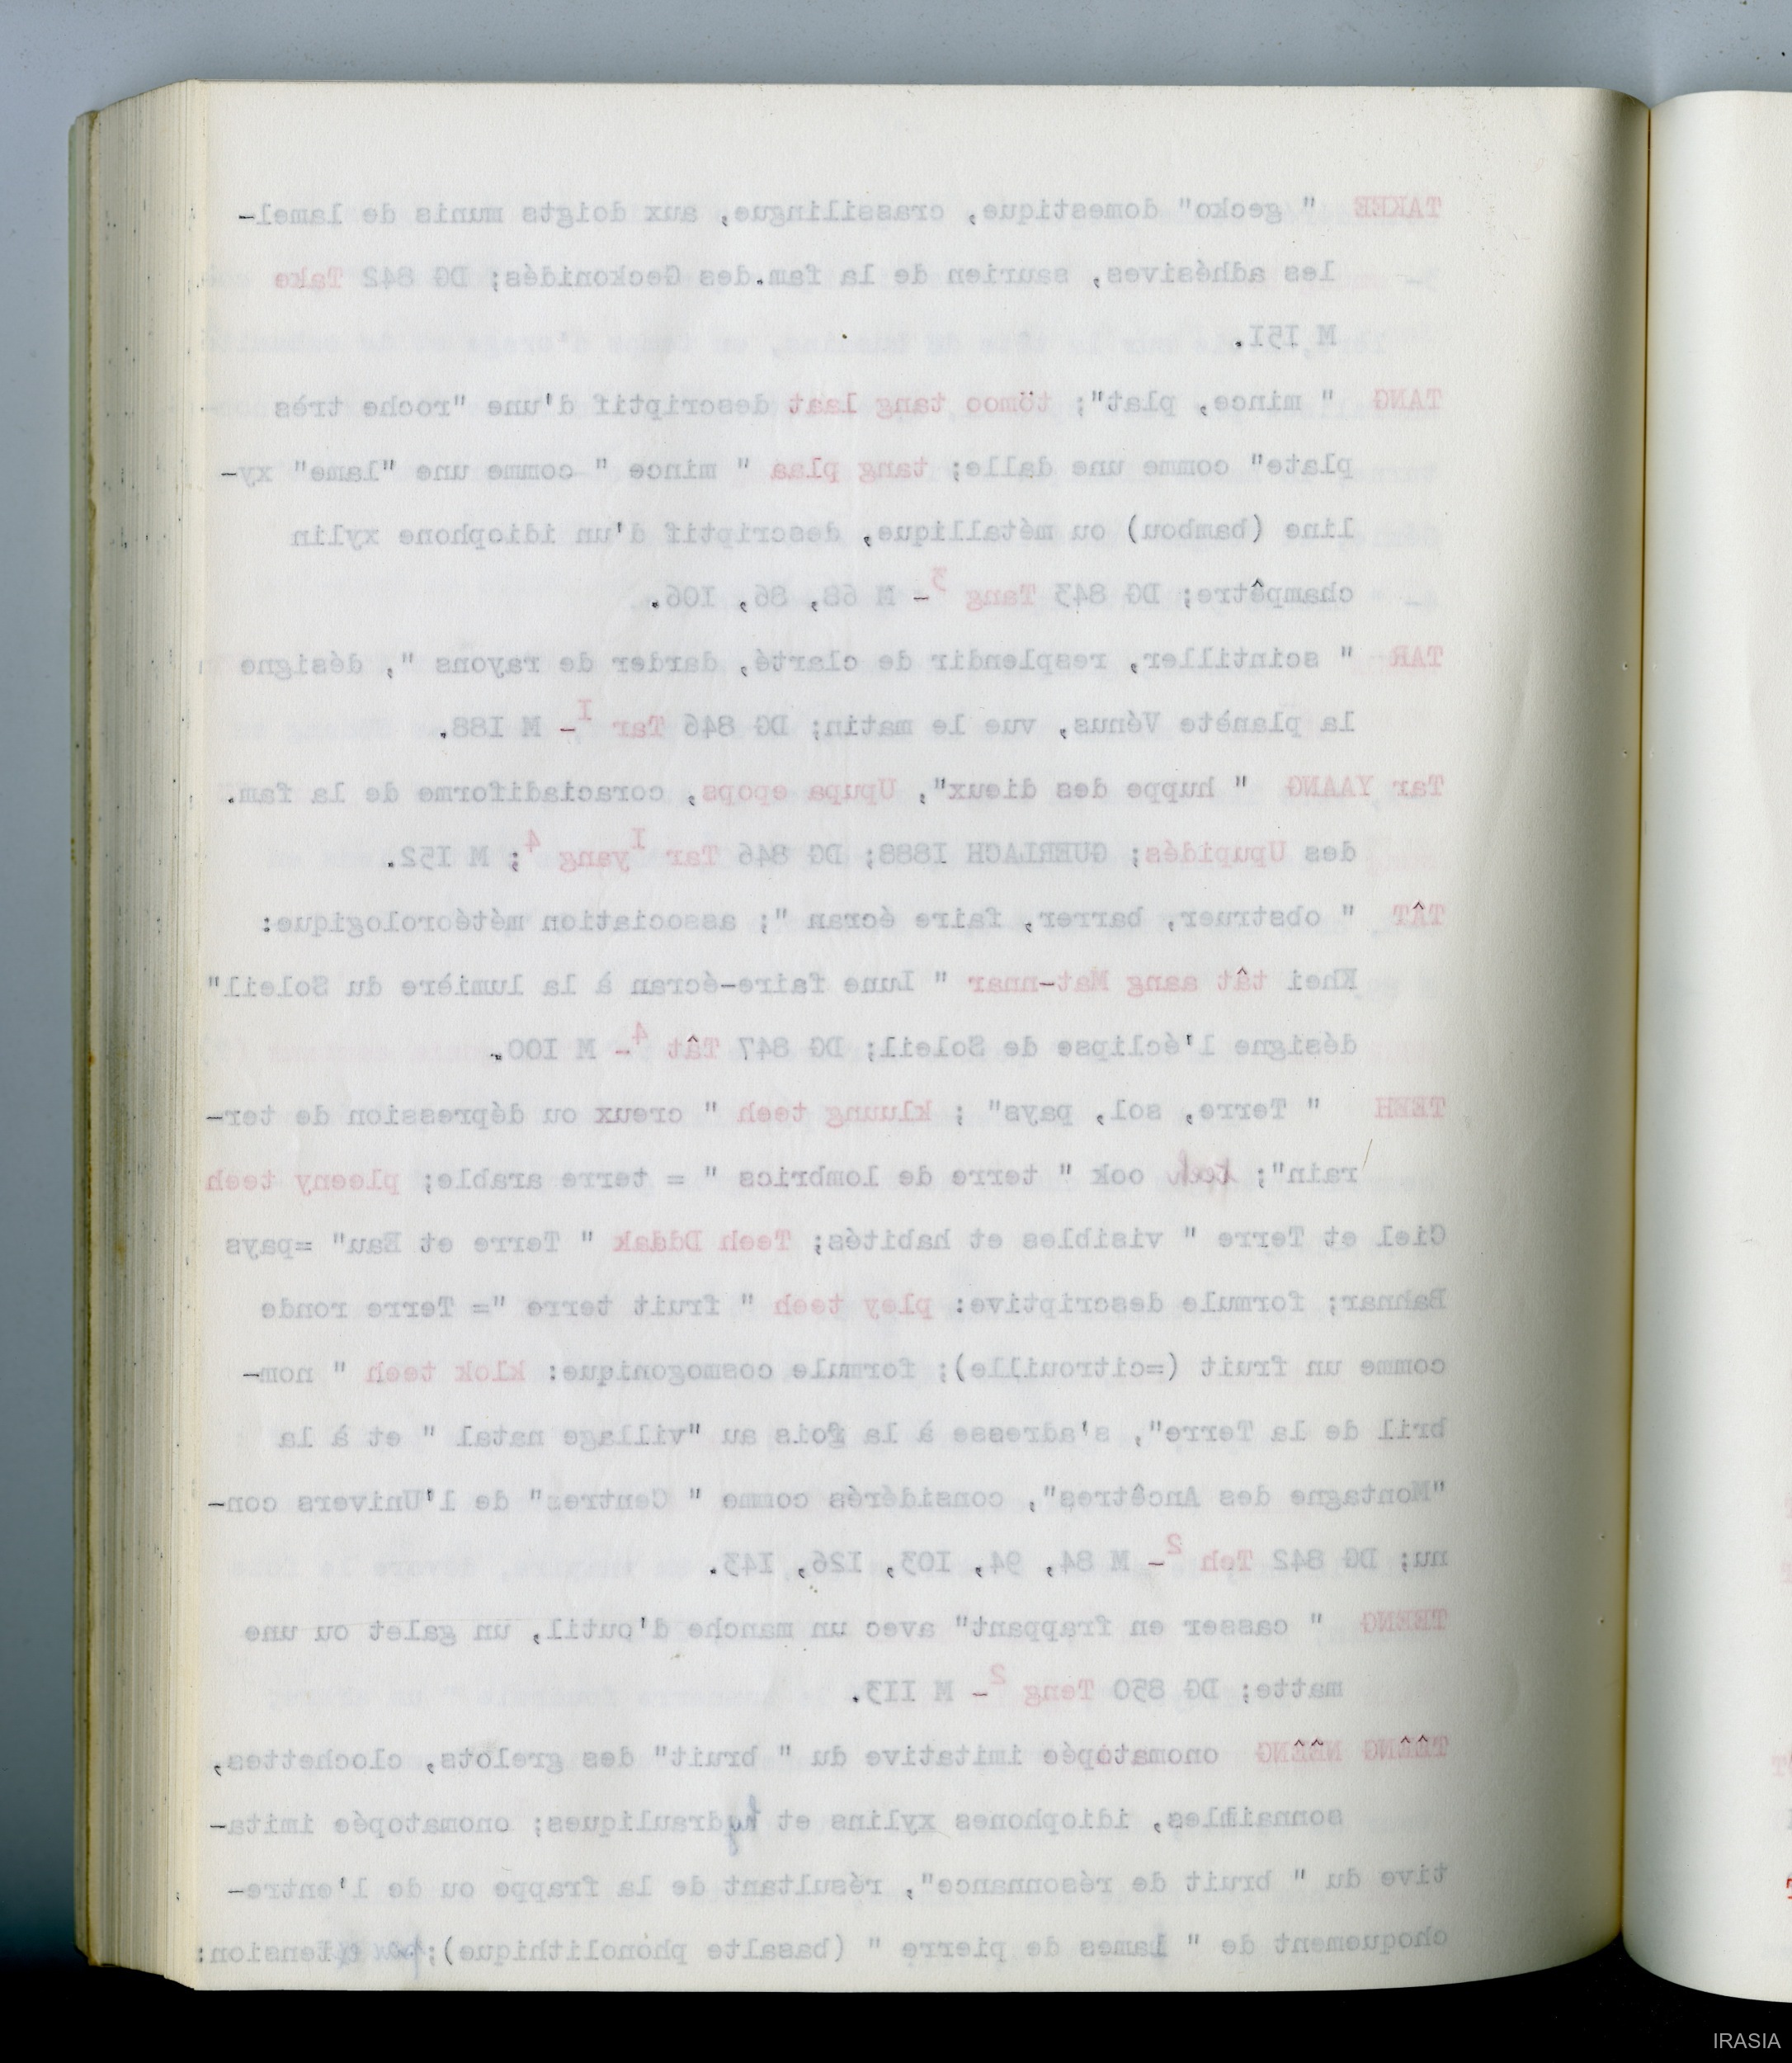 TAKEE " gecko" domestique, crassilingue, aux doigts munis de lamel-
les adhésives, saurien de la fam.des Geckonidés; DG 842 Take
M I5I.
TANG " mince, plat"; tömoo tang laat descriptif d'une "roche très
plate" comme une dalle; tang plaa " mince " comme une "lame" xy-
line (bambou) ou métallique, descriptif d'un idiophone xylin
champêtre; DG 843 Tang 3- M 68, 86, I06.
TAR " scintiller, resplendir de clarté, darder de rayons ", désigne
la planète Vénus, vue le matin; DG 846 Tar I- M I88.
Tar YAANG " huppe des dieux", Upupa epops, coraciadiforme de la fam.
des Upupidés; GUERLACH I888; DG 846 Tar I yang 4; M I52.
TÂT " obstruer, barrer, faire écran "; association météorologique:
Khei tât aang Mat-nnar " Lune faire-écran à la lumière du Soleil"
désigne l'éclipse de Soleil; DG 847 Tât 4- M I00.
TEEH " Terre, sol, pays" ; kluung teeh " creux ou dépression de ter-
rain"; teeh ook " terre de lombrics " = terre arable; pleeny teeh
Ciel et Terre " visibles et habités; Teeh Dddak " Terre et Eau" =pays
Bahnar; formule descriptive: pley teeh " fruit terre "= Terre ronde
comme un fruit (=citrouille); formule cosmogonique: klok teeh " nom-
bril de la Terre", s'adresse à la fois au "village natal " et à la
"Montagne des Ancêtres", considérés comme " Centres" de l'Univers con-
nu; DG 842 Teh 2- M 84, 94, I03, I26, I43.
TEENG " casser en frappant" avec un manche d'outil, un galet ou une
matte; DG 850 Teng 2- M II3.
TÊÊNG NÊÊNG onomatopée imitative du " bruit" des grelots, clochettes,
sonnailles, idiophones xylins et hydrauliques; onomatopée imita-
tive du " bruit de résonnance", résultant de la frappe ou de l'entre-
choquement de " lames de pierre " (basalte phonolithique); par extension:
IRASIA